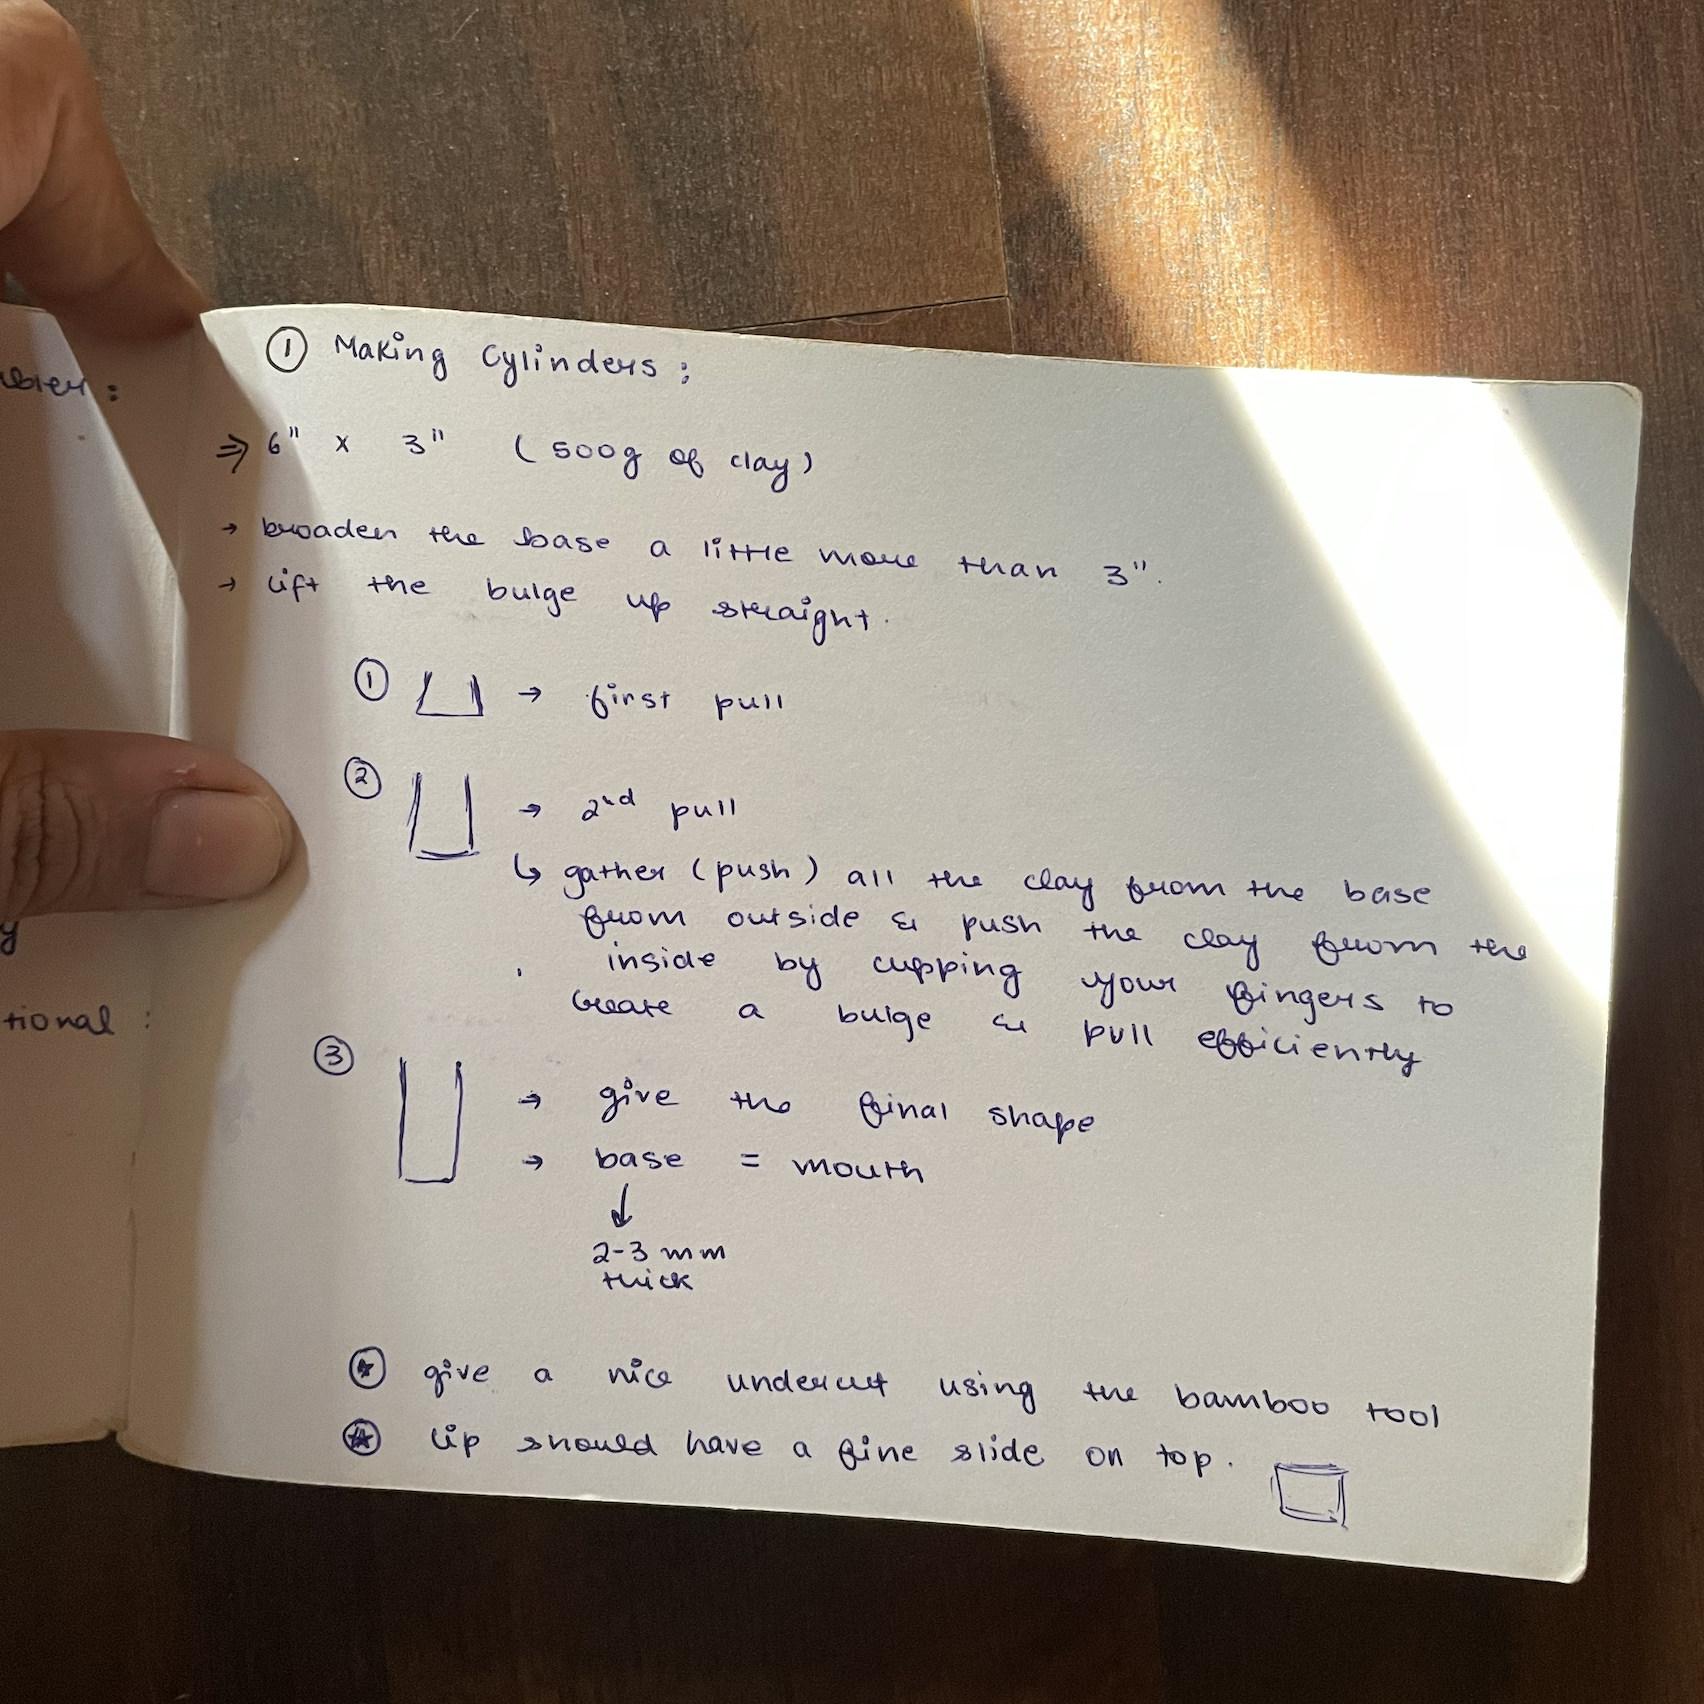 ① Making Cylinders :
⇒ 6" x 3" (500g of clay)
→ broaden the base a little more than 3".
→ lift the bulge up straight.
① → first pull
② → 2nd pull
↳ gather (push) all the clay from the base
from outside & push the clay from the
inside by cupping your fingers to
create a bulge & pull efficiently
③ → give the final shape
→ base = mouth
↓
2-3 mm
thick
⍟ give a nice undercut using the bamboo tool
⍟ lip should have a fine slide on top.
tional :